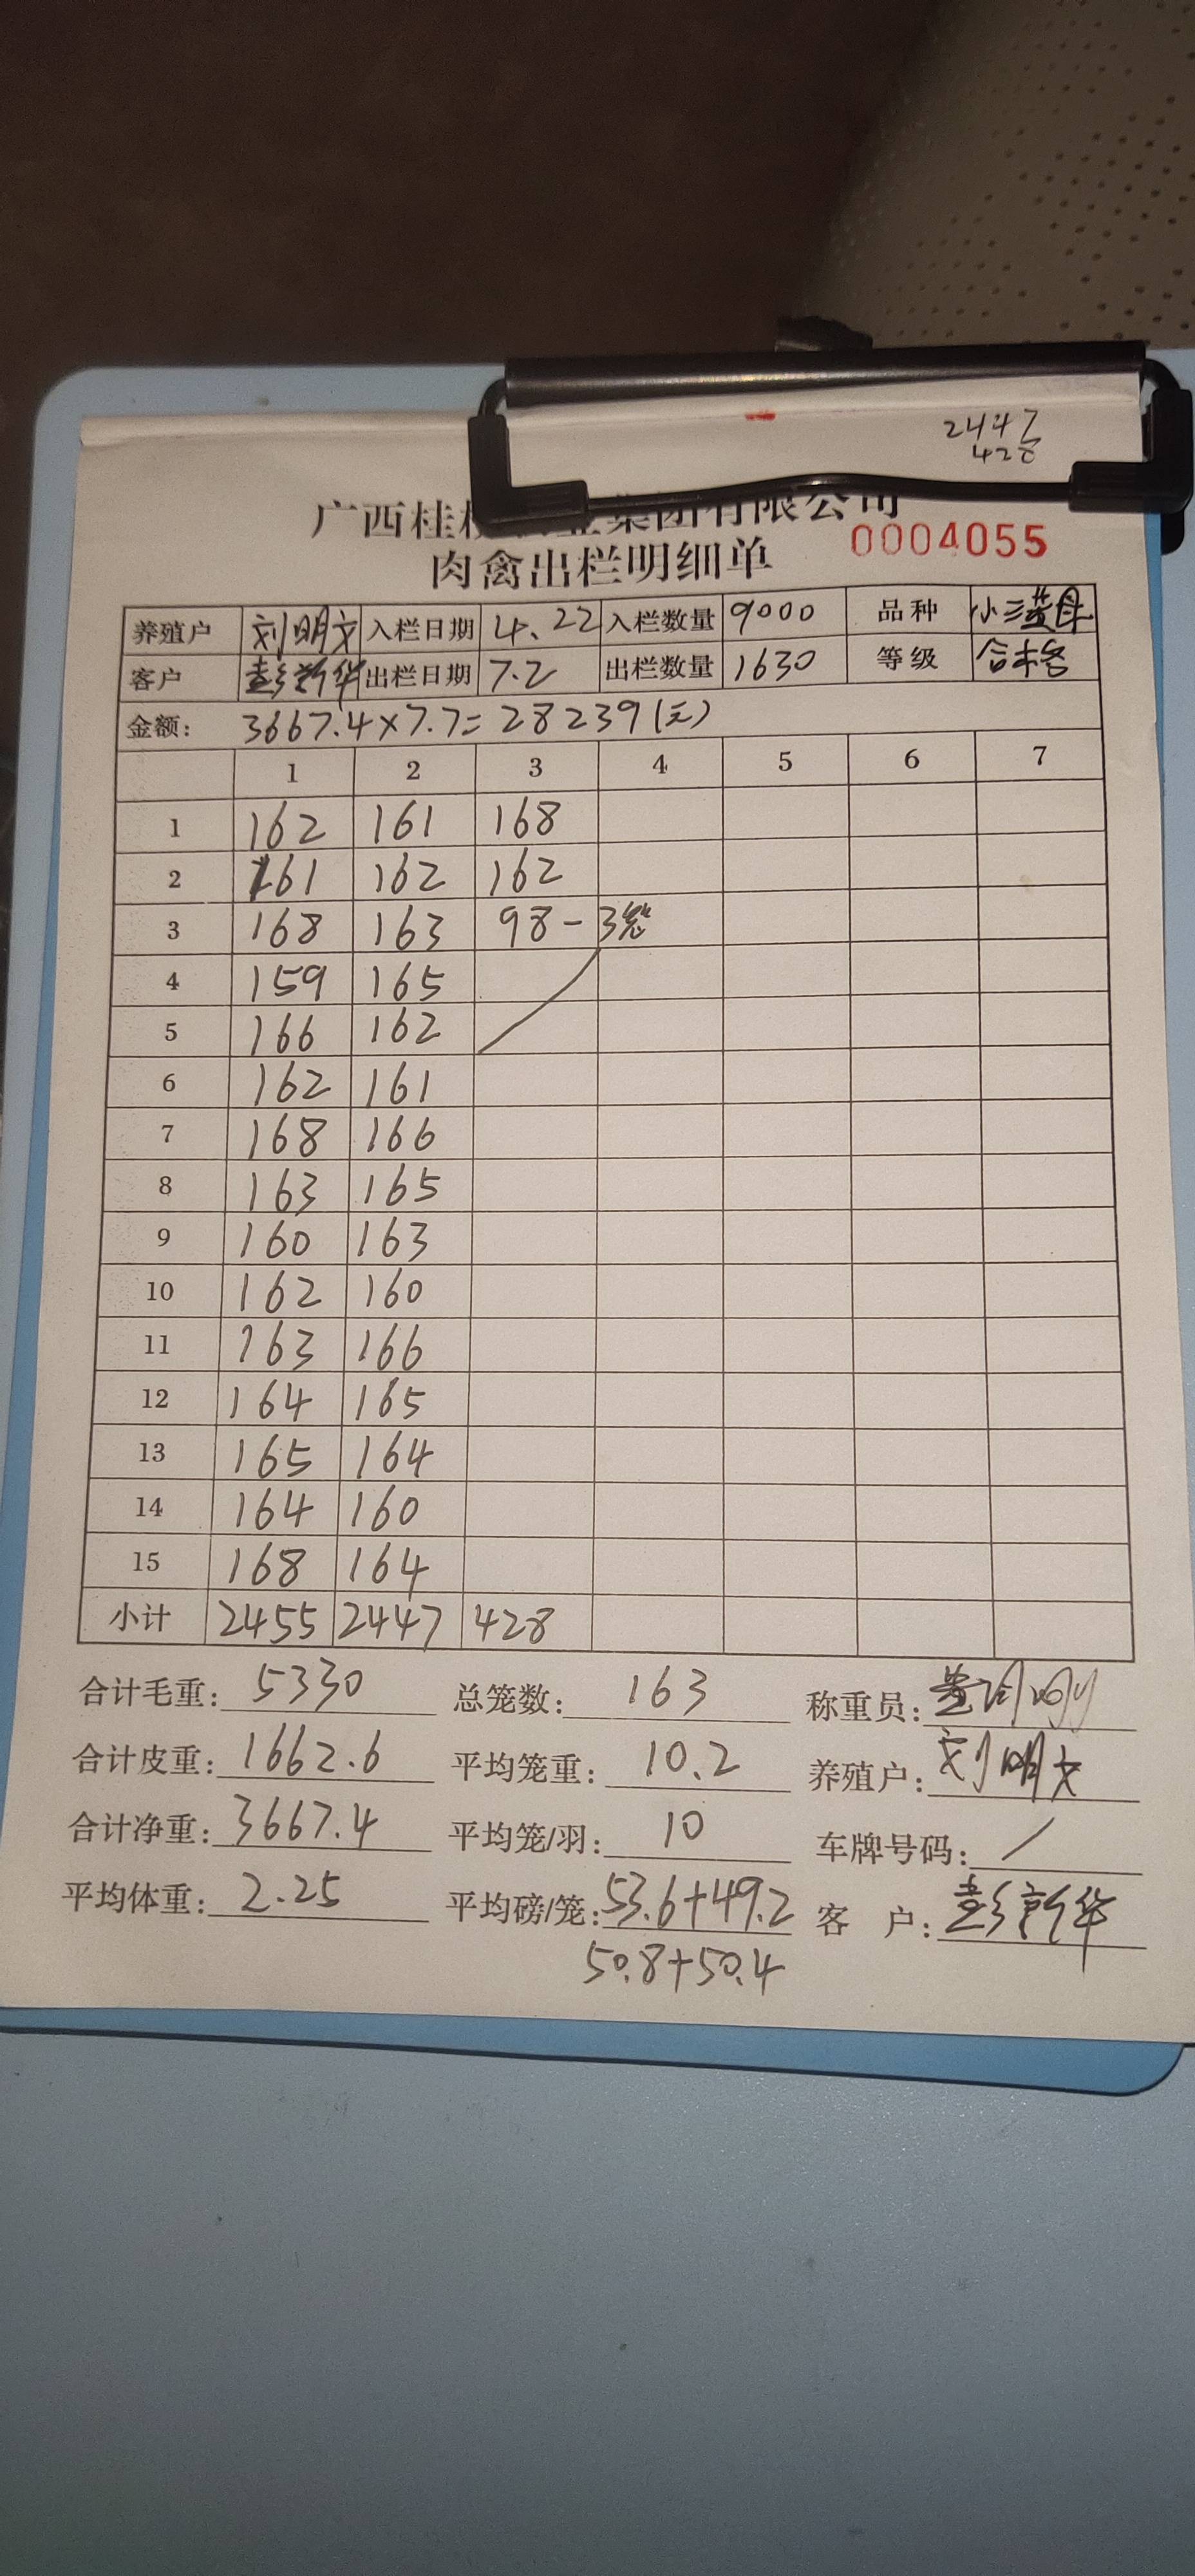 2447
428
广西桂 集团有限公司
0004055
肉禽出栏明细单
养殖户 刘明文 入栏日期 4.22 入栏数量 9000 品种 小三黄母
客户 彭新华 出栏日期 7.2 出栏数量 1630 等级 合格
金额: 3667.4×7.7=28239(元)
1 2 3 4 5 6 7
1 162 161 168
2 161 162 162
3 168 163 98-3笼
4 159 165
5 166 162
6 162 161
7 168 166
8 163 165
9 160 163
10 162 160
11 163 166
12 164 165
13 165 164
14 164 160
15 168 164
小计 2455 2447 428
合计毛重: 5330 总笼数: 163 称重员:
合计皮重: 1662.6 平均笼重: 10.2 养殖户: 刘明文
合计净重: 3667.4 平均笼/羽: 10 车牌号码: /
平均体重: 2.25 平均磅/笼: 53.6+49.2 客户: 彭新华
50.8+50.4